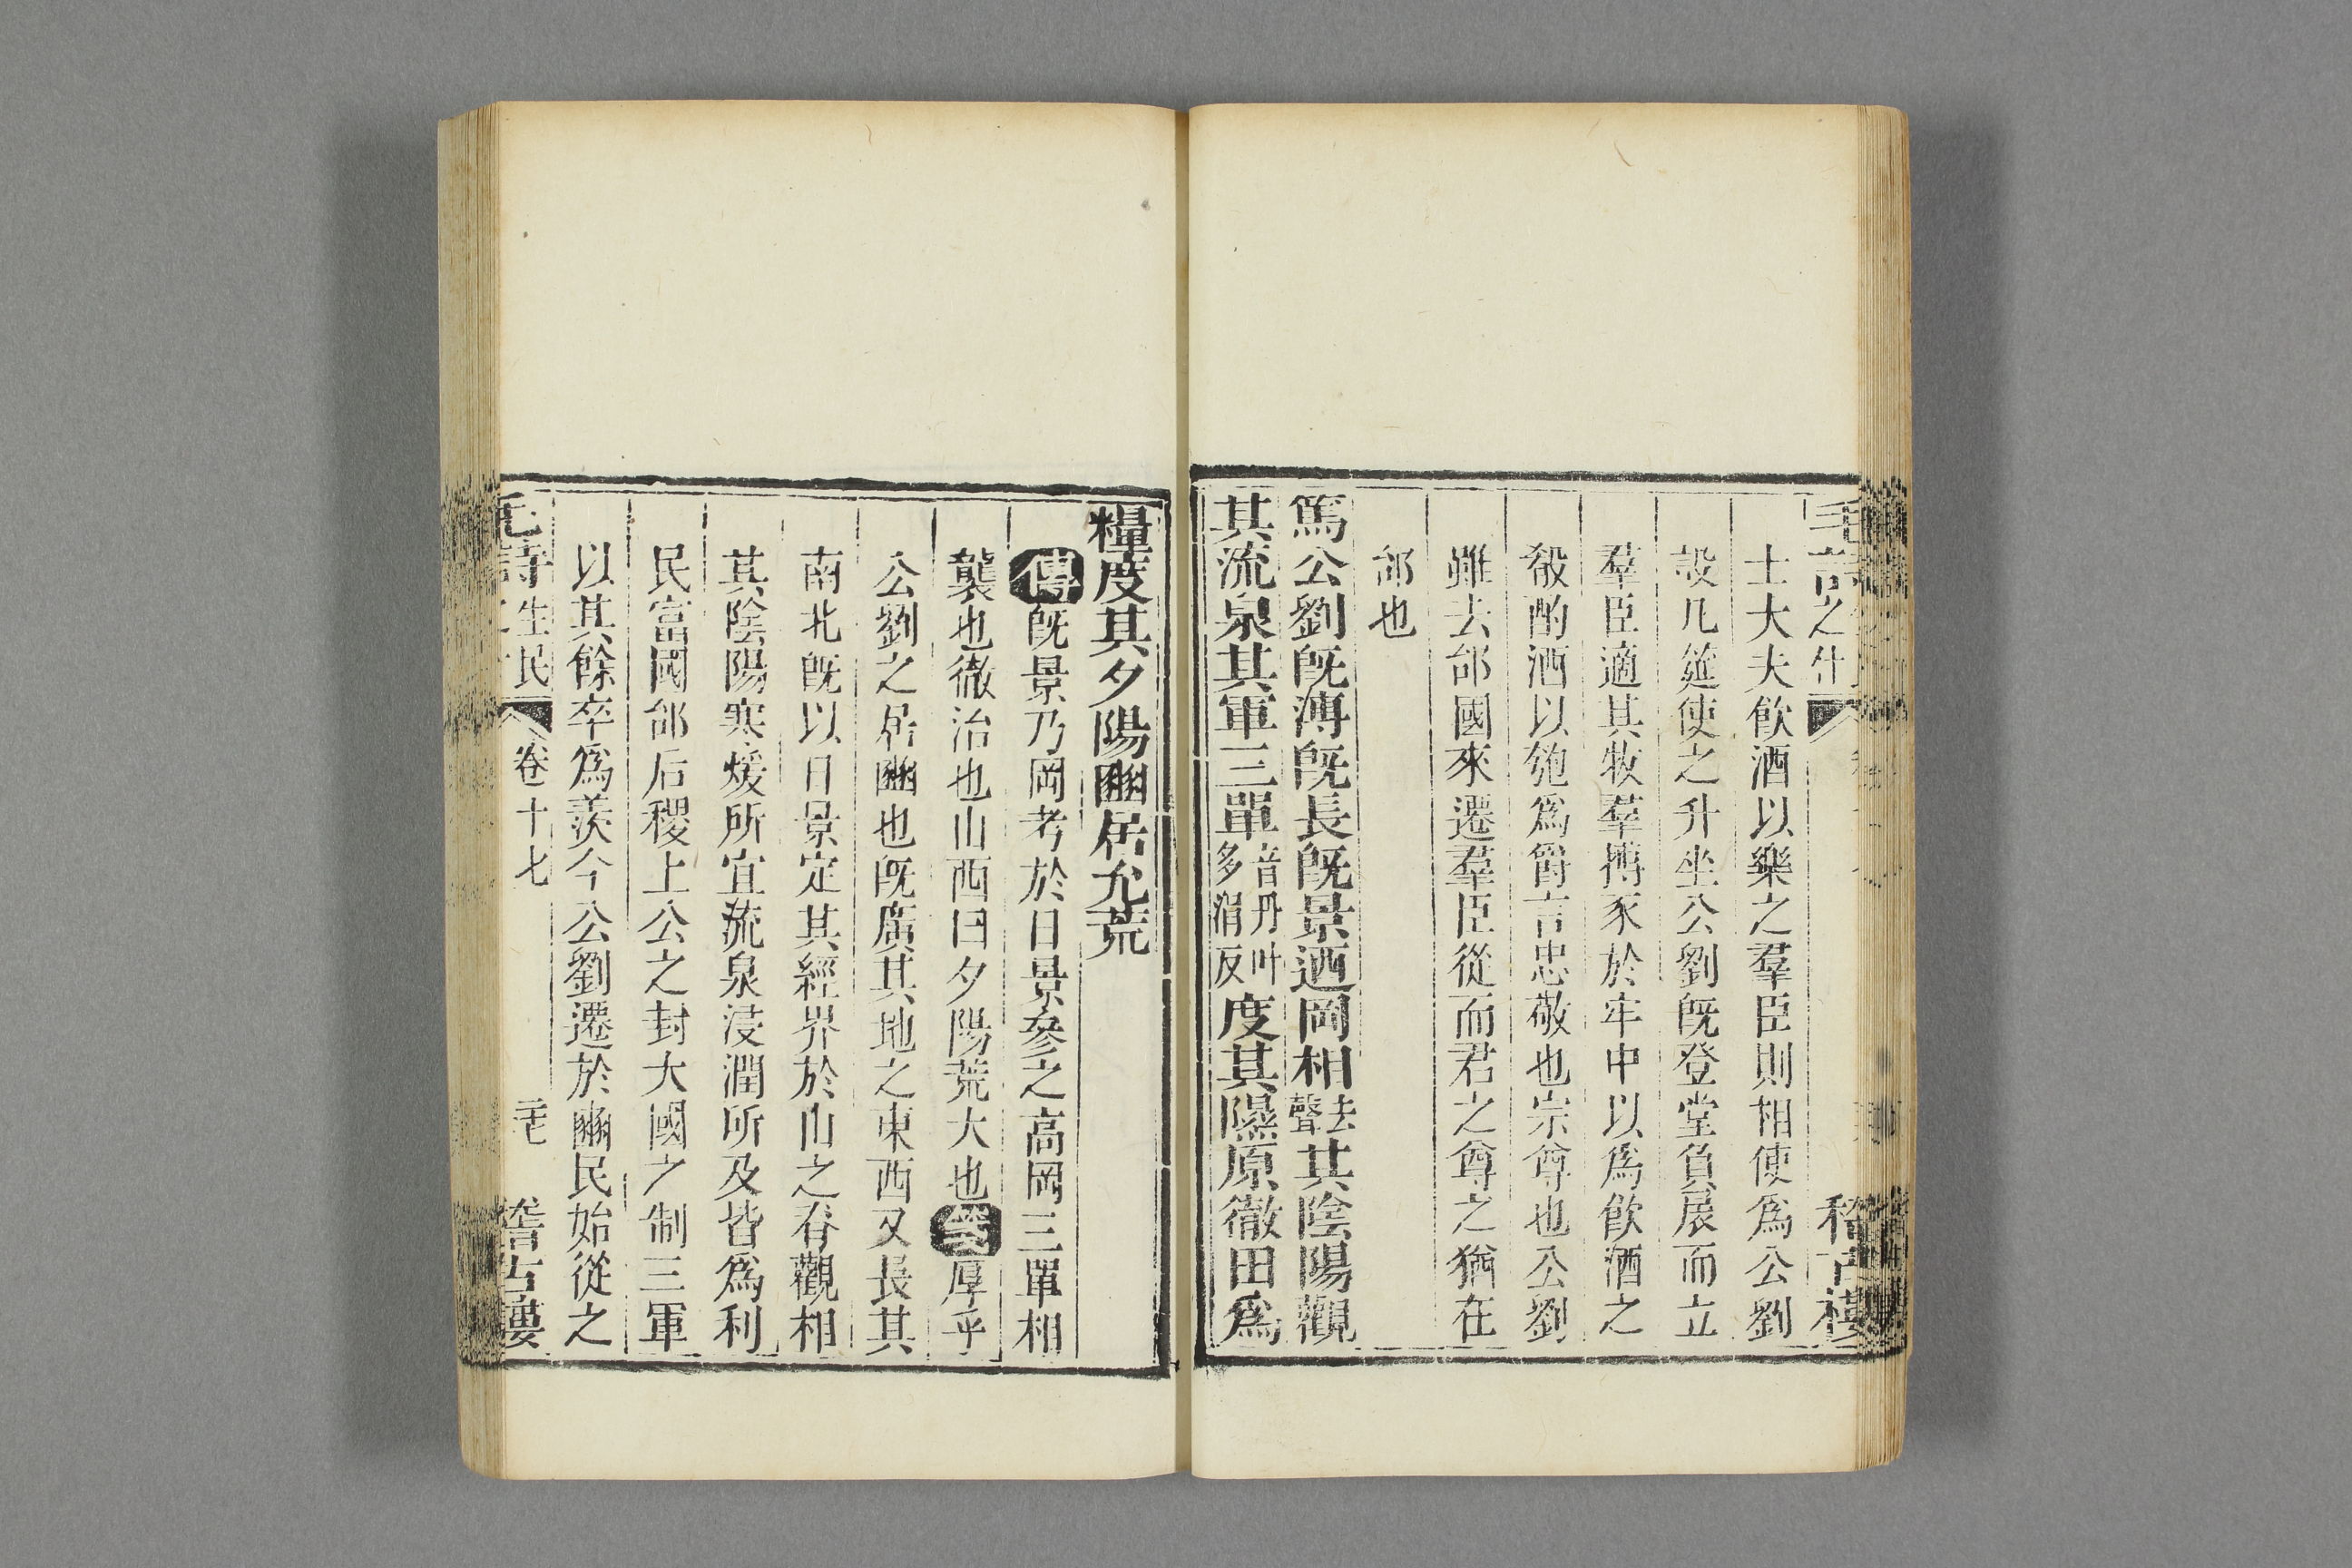 士大夫飮酒以樂之羣臣則相使爲公劉
設几筵使之升坐公劉旣登堂負扆而立
羣臣適其牧羣搏豕於牢中以爲飮酒之
殽酌酒以匏爲爵言忠敬也宗尊也公劉
雖去邰國來遷羣臣從而君之尊之猶在
邰也
篤公劉旣溥旣長旣景迺岡相去聲其陰陽觀
其流泉其軍三單音丹叶多涓反度其隰原徹田爲
糧度其夕陽豳居允荒
傳旣景乃岡考於日景參之高岡三單相
襲也徹治也山西曰夕陽荒大也箋厚乎
公劉之居豳也旣廣其地之東西又長其
南北旣以日景定其經界於山之脊觀相
其陰陽寒煖所宜流泉浸潤所及皆爲利
民富國邰后稷上公之封大國之制三軍
以其餘卒爲羨今公劉遷於豳民始從之
毛詩 生民 卷十七 二十七 稽古樓